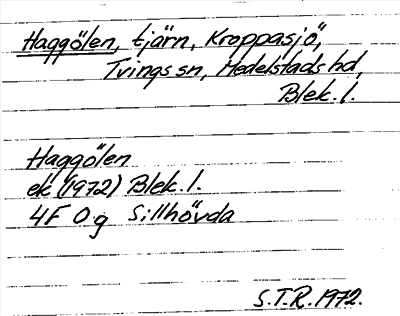 Haggölen, tjärn, Kroppasjö,
Tvings sn, Medelstads hd,
Blek. l.
Haggölen
ek (1972) Blek. l.
4F 0g Sillhövda
S.T.R. 1972.